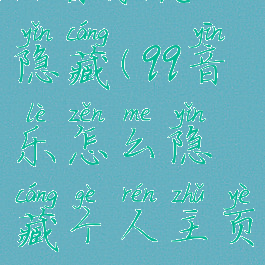 yǐn cáng yīn
隐藏(99音
lè zěn me yǐn
乐怎么隐
cáng gè rén zhǔ yè
藏个人主页